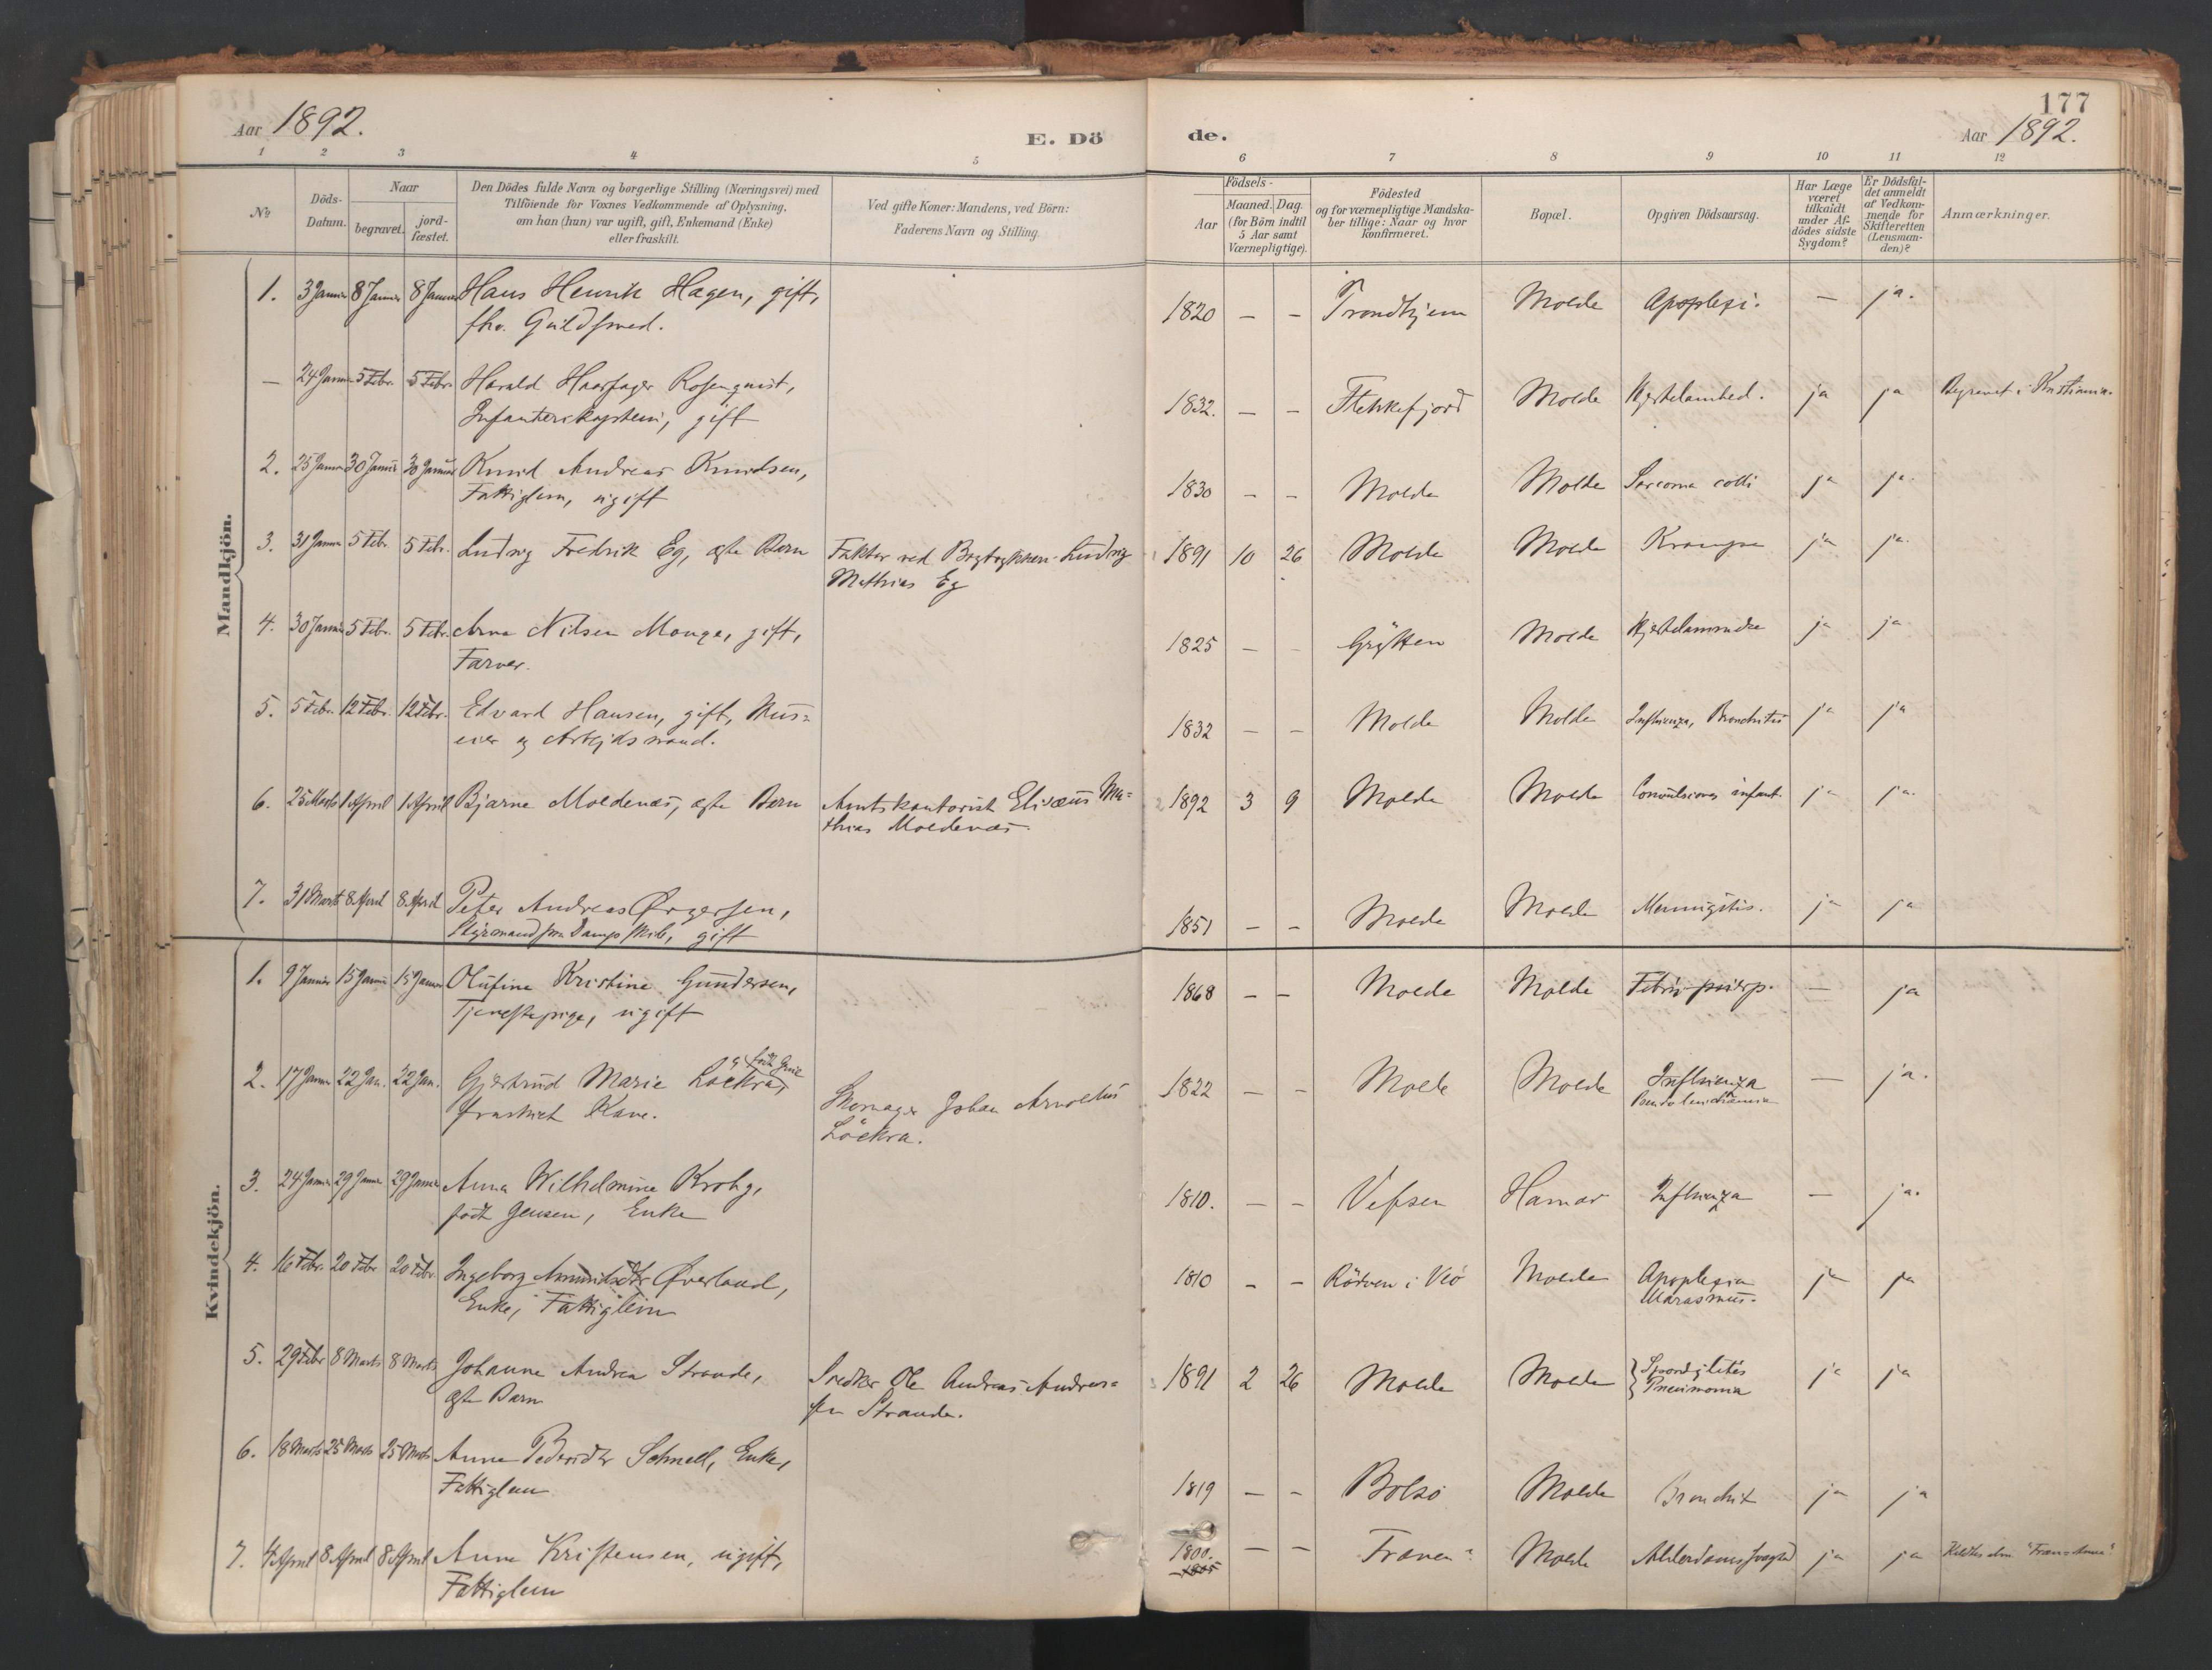 177
Aar 1892.
E. Döde.
Aar 1892.
1 2 3 4 5 6 7 8 9 10 11 12
No
Döds-Datum.
Naar
begravet.
jord-fæstet.
Den Dödes fulde Navn og borgerlige Stilling (Næringsvei) med
Tilföiende for Voxnes Vedkommende af Oplysning,
om han (hun) var ugift, gift, Enkemand (Enke)
eller fraskilt.
Ved gifte Koner: Mandens, ved Börn:
Faderens Navn og Stilling.
Födsels-
Aar
Maaned. Dag.
(for Börn indtil
5 Aar samt
Værnepligtige).
Födested
og for værnepligtige Mandska-
ber tillige: Naar og hvor
konfirmeret.
Bopæl.
Opgiven Dödsaarsag.
Har Læge
været
tilkaldt
under Af-
dödes sidste
Sygdom?
Er Dödsfal-
det anmeldt
af Vedkom-
mende for
Skifteretten
(Lensman-
den)?
Anmærkninger.
Mandkjön.
1. 3 Januar 8 Januar 8 Januar Hans Henrik Hagen, gift, 1820 — — Trondhjem Molde Apoplexi. — ja.
fhv. Guldsmed.
— 24 Januar 5 Febr. 5 Febr. Harald Haarfager Rosenqvist, 1832. — — Flekkefjord Molde Hjertelamhed. ja ja Begravet i Kristiania.
Infanterikaptein, gift
2. 25 Januar 30 Januar 30 Januar Knud Andreas Knudsen, 1830 — — Molde Molde Sarcoma colli ja ja.
Fattiglem, ugift
3. 31 Januar 5 Febr. 5 Febr. Ludvig Fredrik Eg, ægte Barn Faktor ved Bogtrykkeri Ludvig 1891 10 26 Molde Molde Krampe ja ja.
Mathias Eg
4. 30 Januar 5 Febr. 5 Febr. Arne Nilsen Monge, gift, 1825 — — Grytten Molde Hjertelammelse ja ja
Farver.
5. 5 Febr. 12 Febr. 12 Febr. Edvard Hansen, gift, Hus- 1832 — — Molde Molde Influenza, Bronchitis ja ja
eier og Arbejdsmand.
6. 25 Marts 1 April 1 April Bjarne Moldenæs, ægte Barn Amtskontorist Elisæus Ma- 1892 3 9 Molde Molde Convulsiones infant. ja ja.
thias Moldenæs
7. 31 Marts 8 April 8 April Peter Andreas Ørgersen, 1851 — — Molde Molde Meningitis. ja ja
Styrmand paa Dampskib, gift
Kvindekjön.
1. 9 Januar 15 Januar 15 Januar Olufine Kristine Gundersen, 1868 — — Molde Molde Febris puerp. — ja
Tjenestepige, ugift
2. 17 Januar 22 Jan. 22 Jan. Gjertrud Marie Löckra, født 1822 — — Molde Molde Influenza — ja.
fraskilt Kone. Skomager Johan Arnoldus
Löckra.
3. 24 Januar 29 Januar 29 Januar Anna Wilhelmine Krohg, 1810. — — Vefsen Hamar Influenza — ja.
født Jensen, Enke
4. 16 Febr. 20 Febr 20 Febr. Ingeborg Amundsdtr Øverland, 1810 — — Rödven i Veö Molde Apoplexia ja ja
Enke, Fattiglem Marasmus.
5. 29 Febr 8 Marts 8 Marts Johanne Andrea Strande, Snedker Ole Andreas Andreas- 1891 2 26 Molde Molde ja ja
ægte Barn sen Strande. Pneumonia
6. 18 Marts 25 Marts 25 Marts Anne Pedersdtr Schnell, Enke, 1819 — — Bolsö Molde Bronchit ja ja
Fattiglem
7. 4 April 8 April 8 April Anne Kristensen, ugift, 1800. — — Fræna? Molde Alderdomssvaghed ja ja Kaldtes
Fattiglem 1805